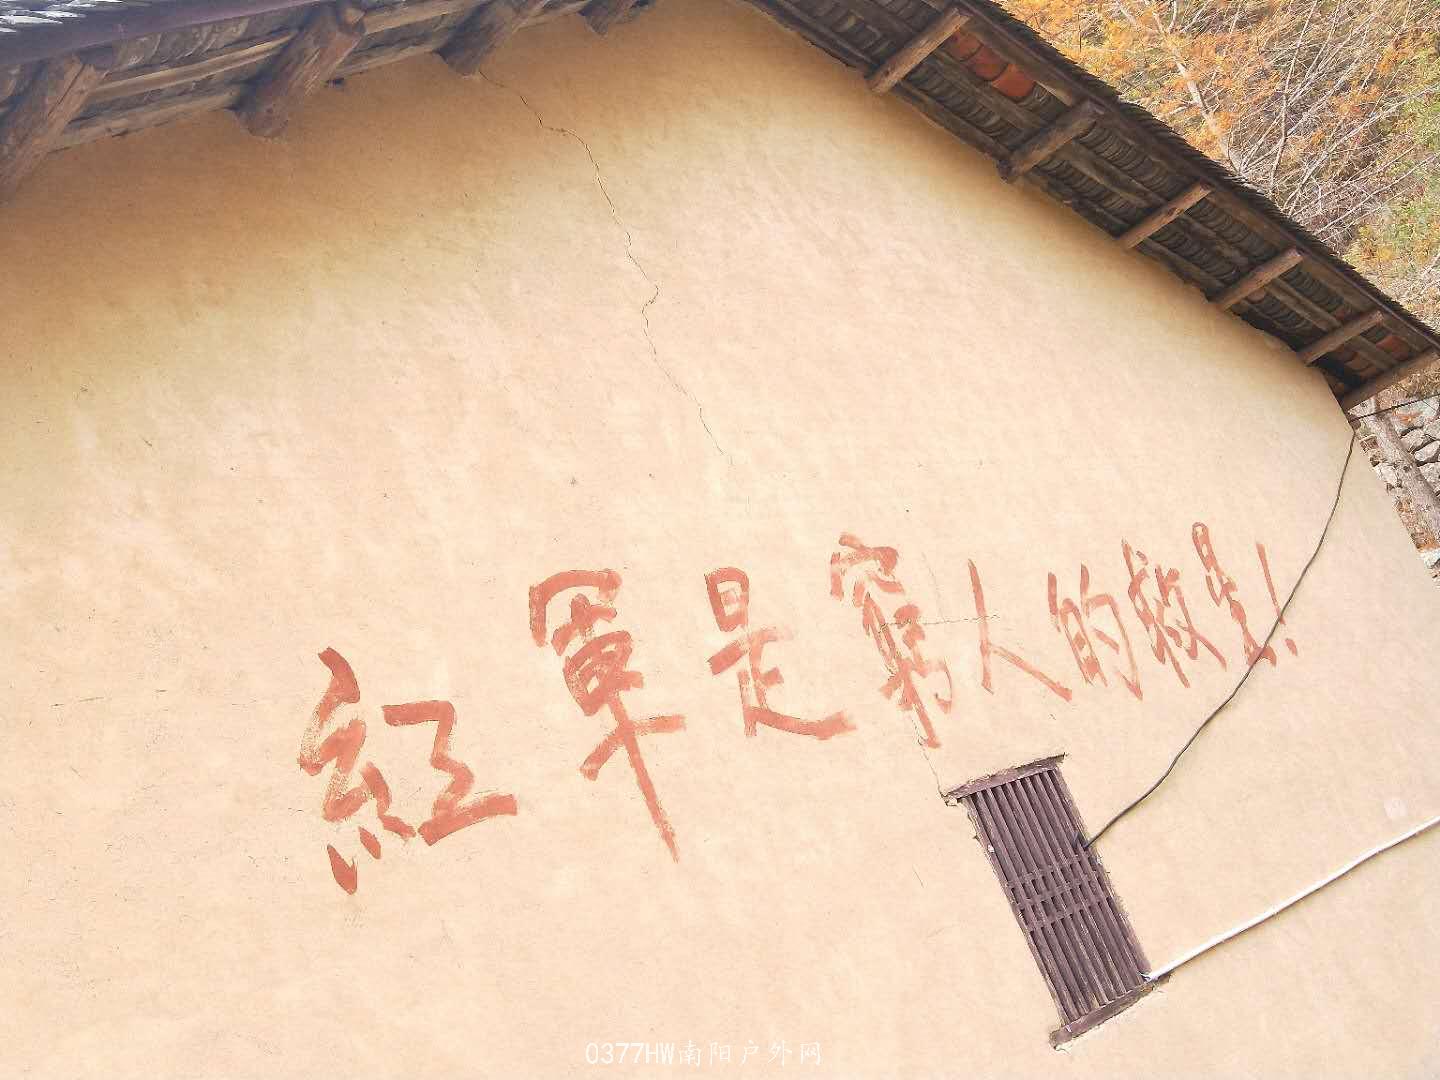 紅軍是窮人的救星!
0377HW南阳户外网